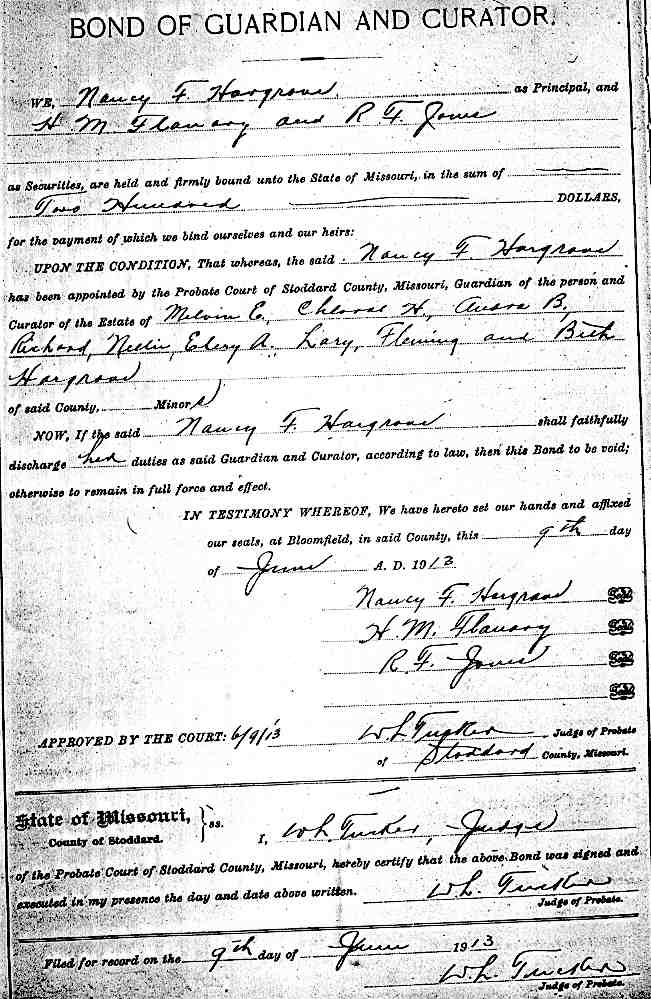 BOND OF GUARDIAN AND CURATOR.
WE, Nancy F. Hargrove as Principal, and
H. M. Flanary and R. F. Jones
as Securities, are held and firmly bound unto the State of Missouri, in the sum of
Two Hundred DOLLARS,
for the payment of which we bind ourselves and our heirs:
UPON THE CONDITION, That whereas, the said Nancy F. Hargrove
has been appointed by the Probate Court of Stoddard County, Missouri, Guardian of the person and
Curator of the Estate of Melvin E., H., B,
Richard, Nellie, A., Lary, Fleming and
Hargrove
of said County, Minors
NOW, If the said Nancy F. Hargrove shall faithfully
discharge her duties as said Guardian and Curator, according to law, then this Bond to be void;
otherwise to remain in full force and effect.
IN TESTIMONY WHEREOF, We have hereto set our hands and affixed
our seals, at Bloomfield, in said County, this 9th day
of June A. D. 1913
Nancy F. Hargrove
H. M. Flanary
R. F. Jones
APPROVED BY THE COURT: 6/9/13 W L Tucker Judge of Probate
of Stoddard County, Missouri.
State of Missouri, } ss.
County of Stoddard.
I, W L Tucker, Judge
of the Probate Court of Stoddard County, Missouri, hereby certify that the above Bond was signed and
executed in my presence the day and date above written. W L. Tucker
Judge of Probate.
Filed for record on the 9th day of June 1913
W L. Tucker
Judge of Probate.